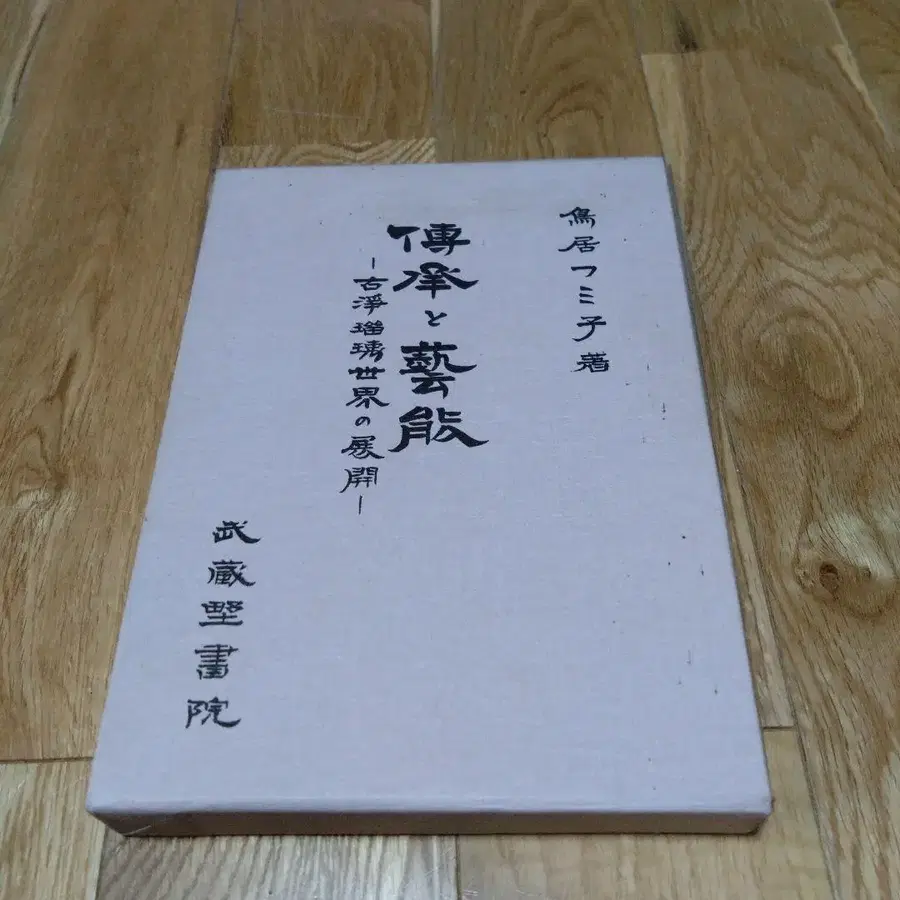 鳥居フミ子著
傳承と藝能
―古淨瑠璃世界の展開―
武蔵野書院